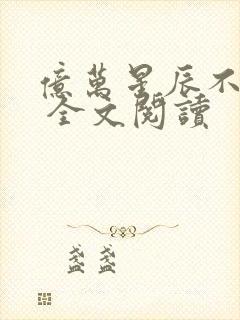 億萬星辰不
全文閱讀
盞盞